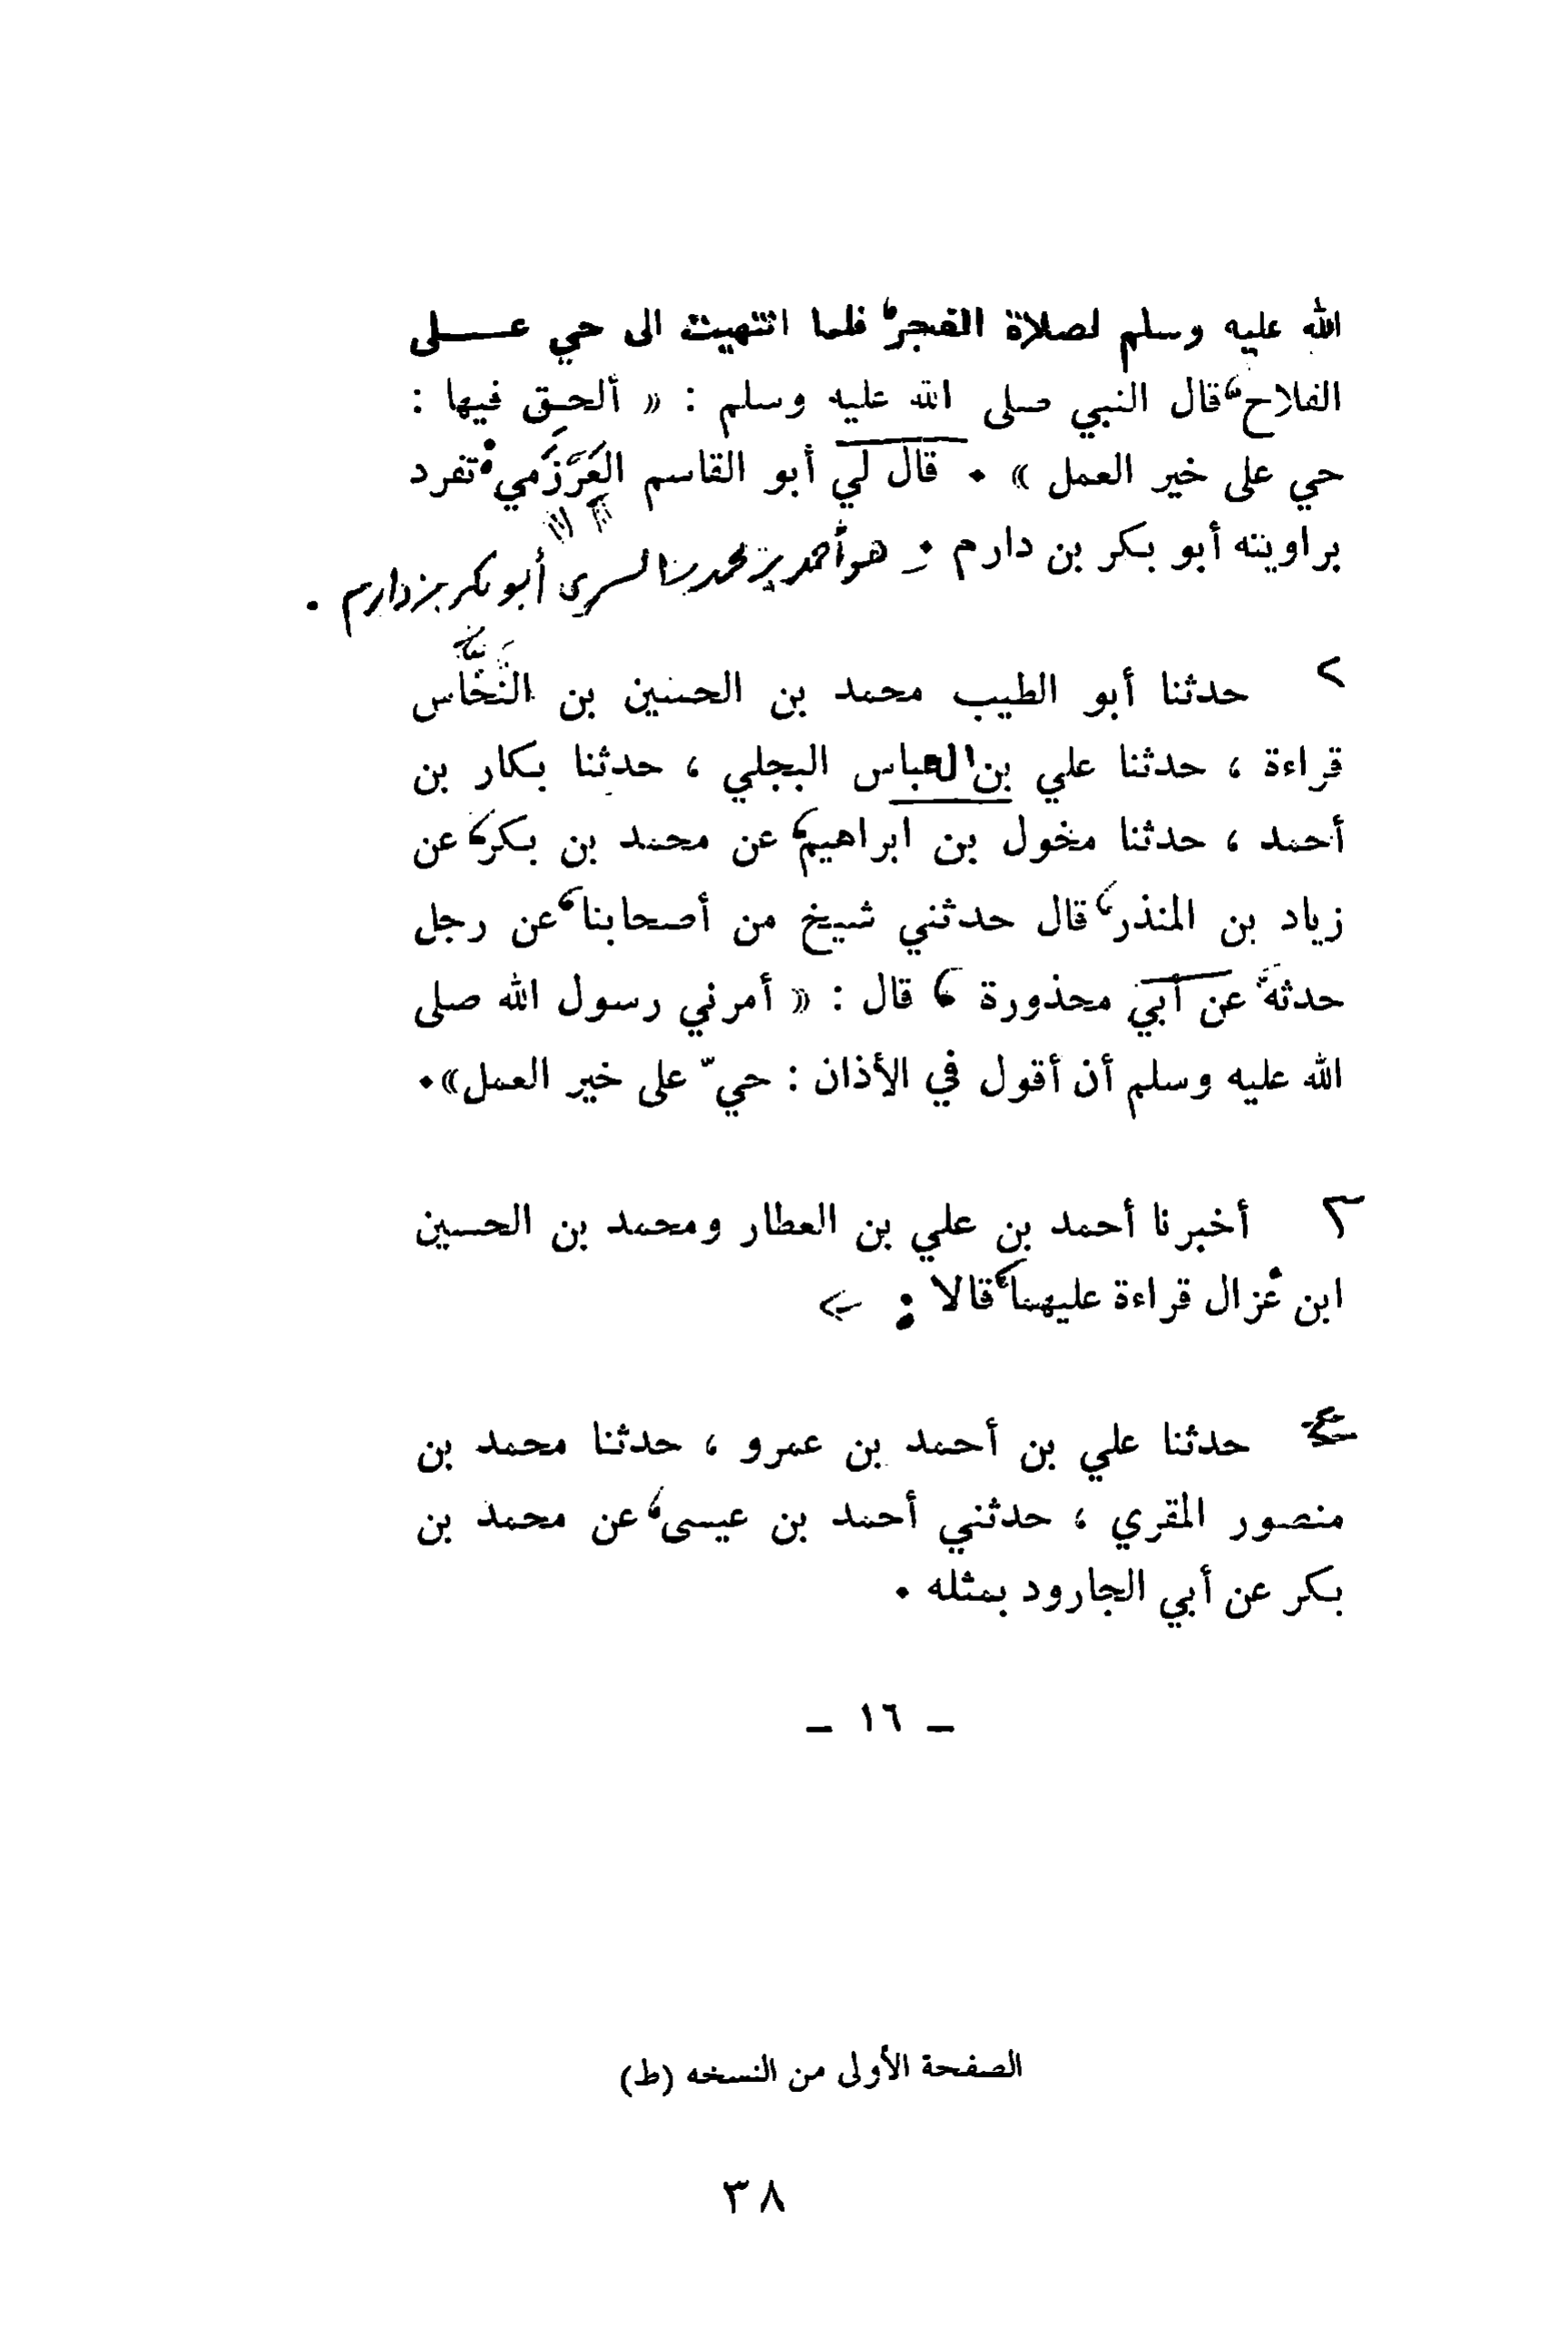 الله عليه وسلم لصلاة الفجر، فلما انتهيت الى حي عــلى
الفلاح، قال النبي صلى الله عليه وسلم : « ألحِق فيها :
حي على خير العمل » . قال لي أبو القاسم العَرْزَمي: تفرد
براويته أبو بكر بن دارم . هو أحمد بن محمد بن السري أبو بكر بن دارم .
حدثنا أبو الطيب محمد بن الحسين بن النَخَّاس
قراءة ، حدثنا علي بن العباس البجلي ، حدثنا بكار بن
أحمد ، حدثنا مخول بن ابراهيم، عن محمد بن بكر، عن
زياد بن المنذر، قال حدثني شيخ من أصحابنا، عن رجل
حدثه عن أبي محذورة ، قال : « أمرني رسول الله صلى
الله عليه وسلم أن أقول في الأذان : حيّ على خير العمل».
أخبرنا أحمد بن علي بن العطار ومحمد بن الحسين
ابن غزال قراءة عليهما، قالا :
حدثنا علي بن أحمد بن عمرو ، حدثنا محمد بن
منصور المقري ، حدثني أحمد بن عيسى، عن محمد بن
بكر عن أبي الجارود بمثله .
– ١٦ –
الصفحة الأولى من النسخه (ط)
٣٨